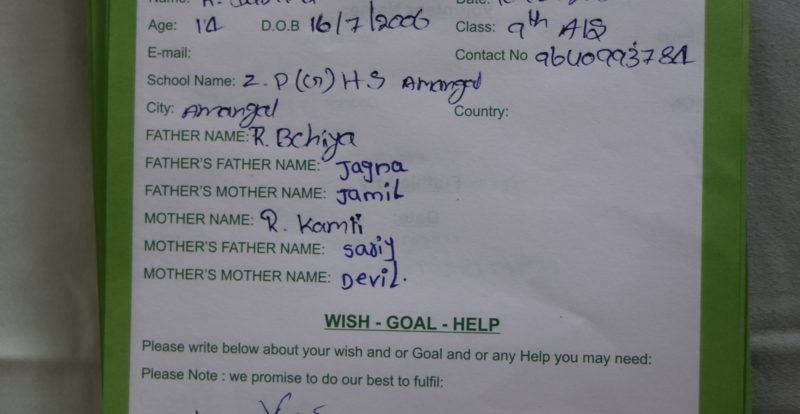 Name: R. Date:
Age: 14 D.O.B 16/7/2006 Class: 9th A/S
E-mail: Contact No 9640993781
School Name: Z.P(G) H.S Amangal
City: Amangal Country:
FATHER NAME: R. Bchiya
FATHER'S FATHER NAME: Jagna
FATHER'S MOTHER NAME: Jamil
MOTHER NAME: R. Kamli
MOTHER'S FATHER NAME:
MOTHER'S MOTHER NAME: Devil.
WISH - GOAL - HELP
Please write below about your wish and or Goal and or any Help you may need:
Please Note : we promise to do our best to fulfil: